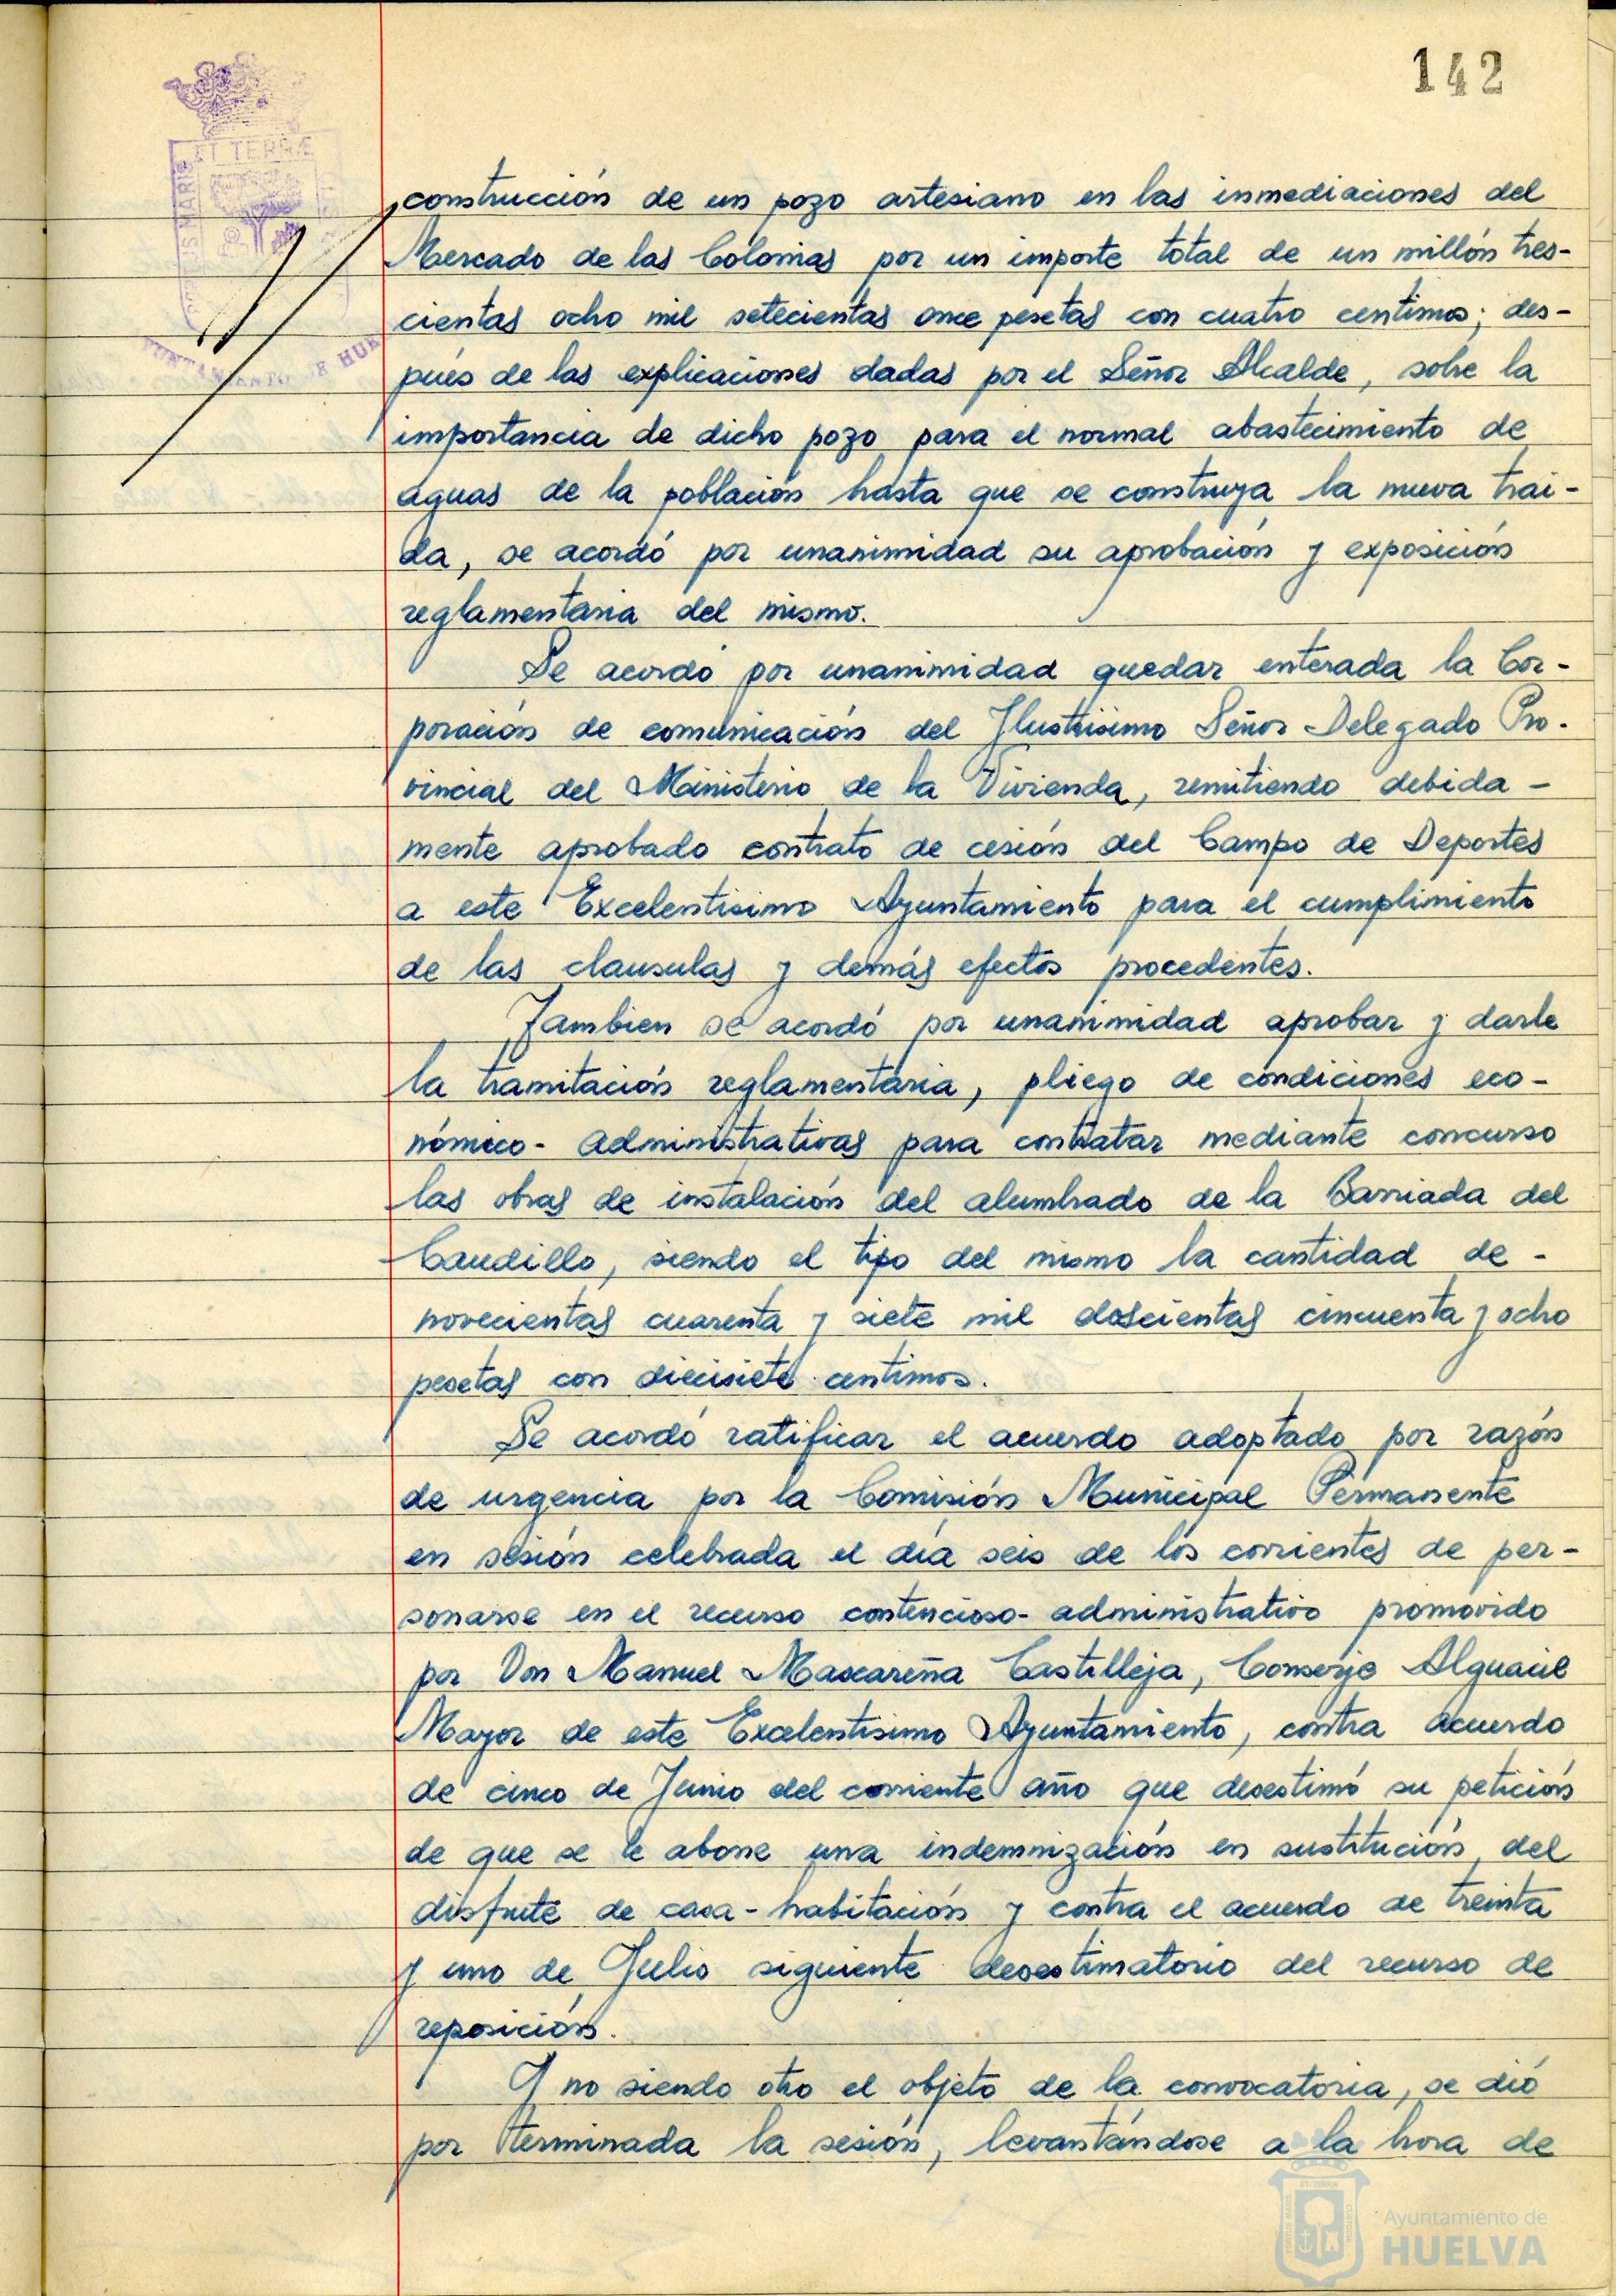 142
ET TERRÆ
PORTUS MARIS
construcción de un pozo artesiano en las inmediaciones del
Mercado de las Colonias por un importe total de un millón tres-
cientas ocho mil setecientas once pesetas con cuatro centimos; des-
pués de las explicaciones dadas por el Señor Alcalde, sobre la
importancia de dicho pozo para el normal abastecimiento de
aguas de la población hasta que se construya la nueva trai-
da, se acordó por unanimidad su aprobación y exposición
reglamentaria del mismo.
Se acordó por unanimidad quedar enterada la Cor-
poración de comunicación del Ilustrisimo Señor Delegado Pro-
vincial del Ministerio de la Vivienda, remitiendo debida-
mente aprobado contrato de cesión del Campo de Deportes
a este Excelentisimo Ayuntamiento para el cumplimiento
de las clausulas y demás efectos procedentes.
Tambien se acordó por unanimidad aprobar y darle
la tramitación reglamentaria, pliego de condiciones eco-
nómico-administrativas para contratar mediante concurso
las obras de instalación del alumbrado de la Barriada del
Caudillo, siendo el tipo del mismo la cantidad de-
novecientas cuarenta y siete mil doscientas cincuenta y ocho
pesetas con diecisiete centimos.
Se acordó ratificar el acuerdo adoptado por razón
de urgencia por la Comisión Municipal Permanente
en sesión celebrada el día seis de los corrientes de per-
sonarse en el recurso contencioso-administrativo promovido
por Don Manuel Mascareña Castilleja, Conserje Alguacil
Mayor de este Excelentisimo Ayuntamiento, contra acuerdo
de cinco de Junio del corriente año que desestimó su petición
de que se le abone una indemnización en sustitución del
disfrute de casa-habitación y contra el acuerdo de treinta
y uno de Julio siguiente desestimatorio del recurso de
reposición.
Y no siendo otro el objeto de la convocatoria, se dió
por terminada la sesión, levantándose a la hora de
Ayuntamiento de
HUELVA